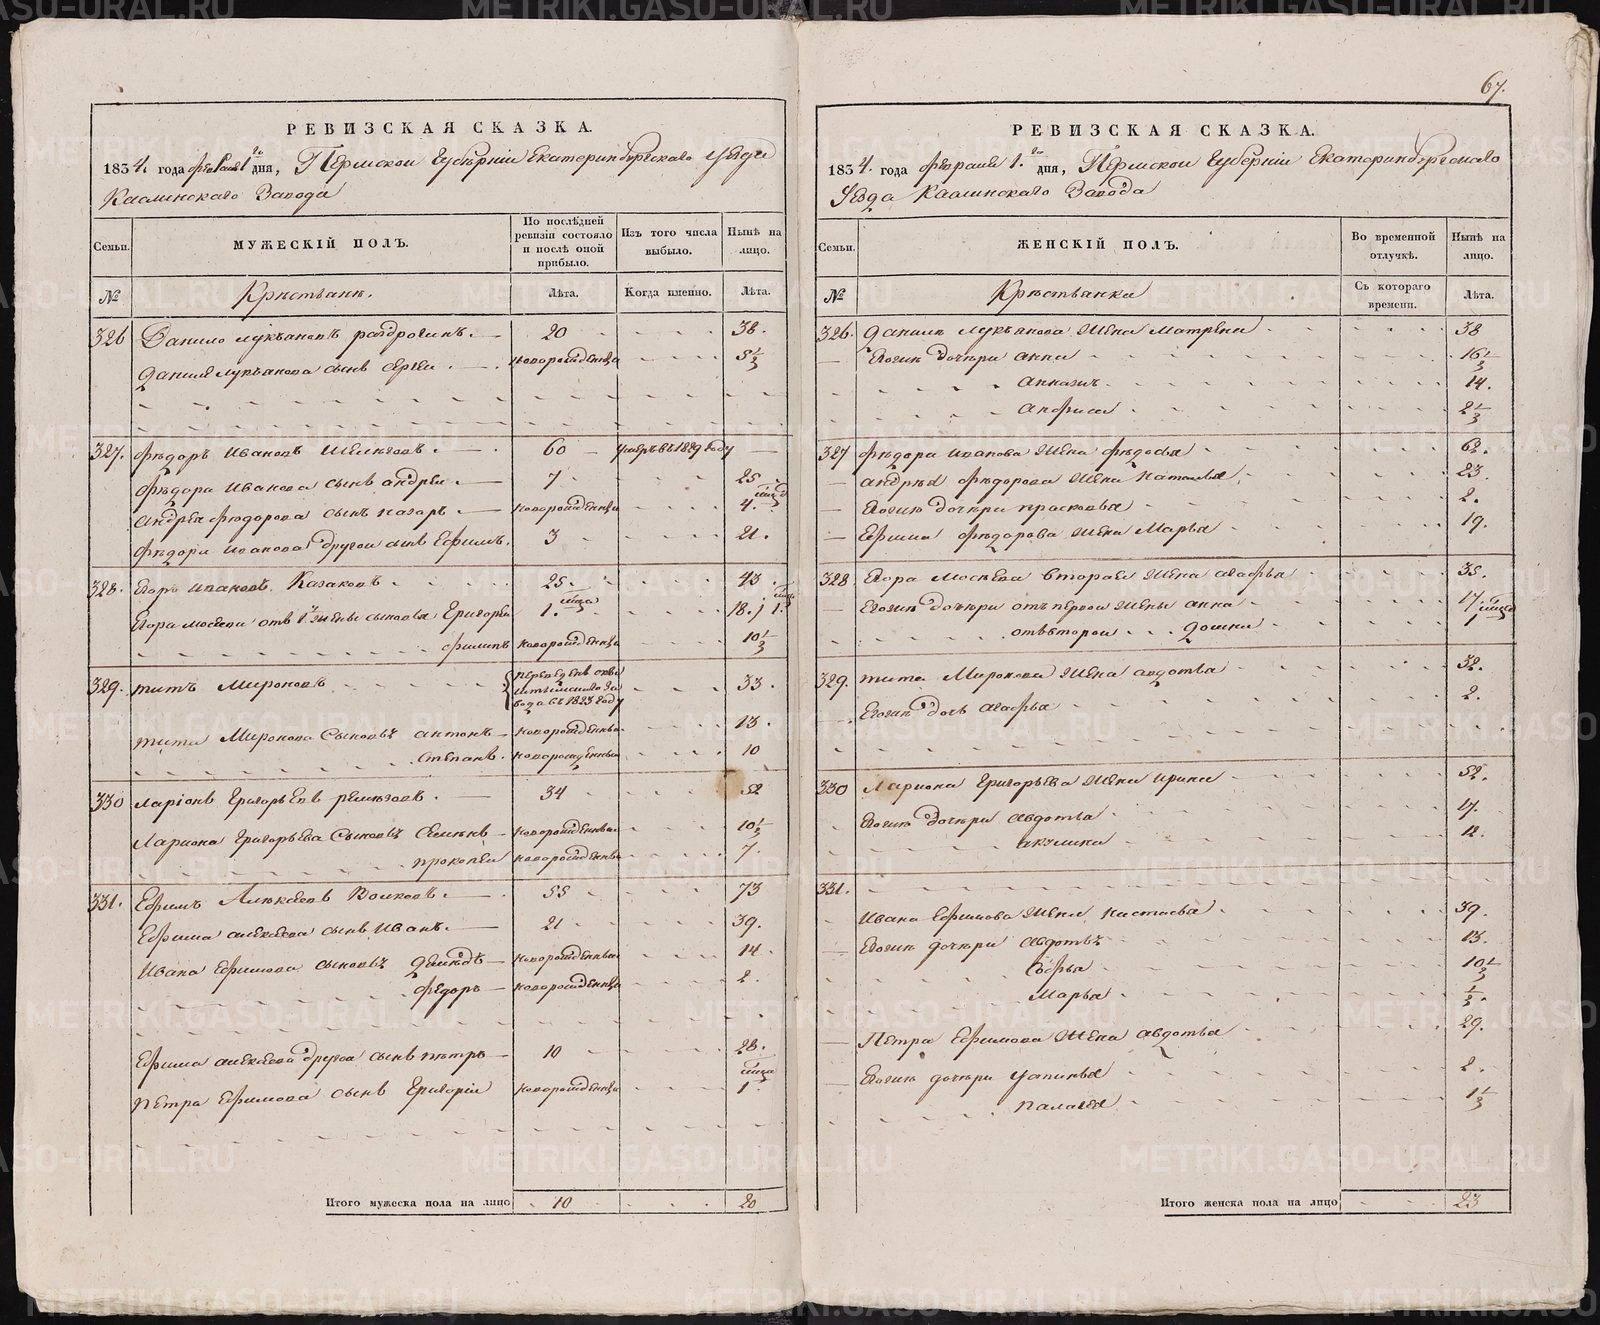 67.
РЕВИЗСКАЯ СКАЗКА.
1834. года февраля 1го дня, Пермской Губернии Екатеринбургскаго уезда
Каслинскаго Завода
Семьи.
МУЖЕСКІЙ ПОЛЪ.
По послѣдней ревизіи состояло и послѣ оной прибыло.
Изъ того числа выбыло.
Нынѣ на лицо.
№ Крестьяне. Лѣта. Когда именно. Лѣта.
326 Данило Лукьяновъ 20 38.
Данила Лукьянова сынъ Сергей новорожденный 5 1/3
327. Федоръ Ивановъ 60 умеръ въ 1829 году
Федора Иванова сынъ Андрей 7 25
Андрея Федорова сынъ Назаръ новорожденный 4. мца
Федора Иванова другой сынъ Ефимъ. 3 21.
328. Егоръ Ивановъ Казаковъ 25. 43.
Егора Мосеева отъ 1й жены сыновья Григорей 1. мца 18. 1.
Филипъ новорожденный 10 1/2
329. Титъ Мироновъ 33.
завода въ 1823 году
Тита Миронова сыновья Антонъ новорожденный 13.
Степанъ. новорожденный 10
330 Ларіонъ Григорьевъ Ремезовъ. 34 52
Лариона Григорьева сыновья Семенъ новорожденный 10 1/2
Прокопей новорожденный 7.
331. Ефимъ Алексеевъ Волковъ. 55 73
Ефима Алексеева сынъ Иванъ. 21 39.
Ивана Ефимова сыновья Демидъ новорожденный 14
Федоръ новорожденный 2.
Ефима Алексеева другой сынъ Петръ 10 28.
Петра Ефимова сынъ Григорій новорожденный 1 мца
Итого мужеска пола на лицо 10 20
РЕВИЗСКАЯ СКАЗКА.
1834. года февраля 1го дня, Пермской Губерніи Екатеринбургскаго
Уезда Каслинскаго Завода
Семьи.
ЖЕНСКІЙ ПОЛЪ.
Во временной отлучкѣ.
Нынѣ на лицо.
№ Крестьянки Съ котораго времени. Лѣта.
326. Данила Лукьянова жена Матрена 38
Егожи дочери Анна 16 1/2
14.
Анфиса 2 1/3
327 Федора Иванова жена Федосья 62.
Андрея Федорова жена Наталья 23.
Егожи дочери Прасковья 2.
Ефима Федорова жена Марья 19.
328 Егора Мосеева вторая жена Агафья 35.
Егожи дочери отъ первой жены Анна 17.
отъ второй 1 мца
329. Тита Миронова жена Авдотья 32.
Егожи дочь Агафья 2.
330 Лариона Григорьева жена Ирина 52.
Егожи дочери Авдотья 17.
Акулина 12.
331.
Ивана Ефимова жена Настасья 39.
Егожи дочери Авдотья 13.
Софья 10 1/2
Марья 1/2.
Петра Ефимова жена Авдотья 29.
Егожи дочери Устинья 2.
Палагея 1 1/3
Итого женска пола на лицо 23
METRIKI.GASO-URAL.RU